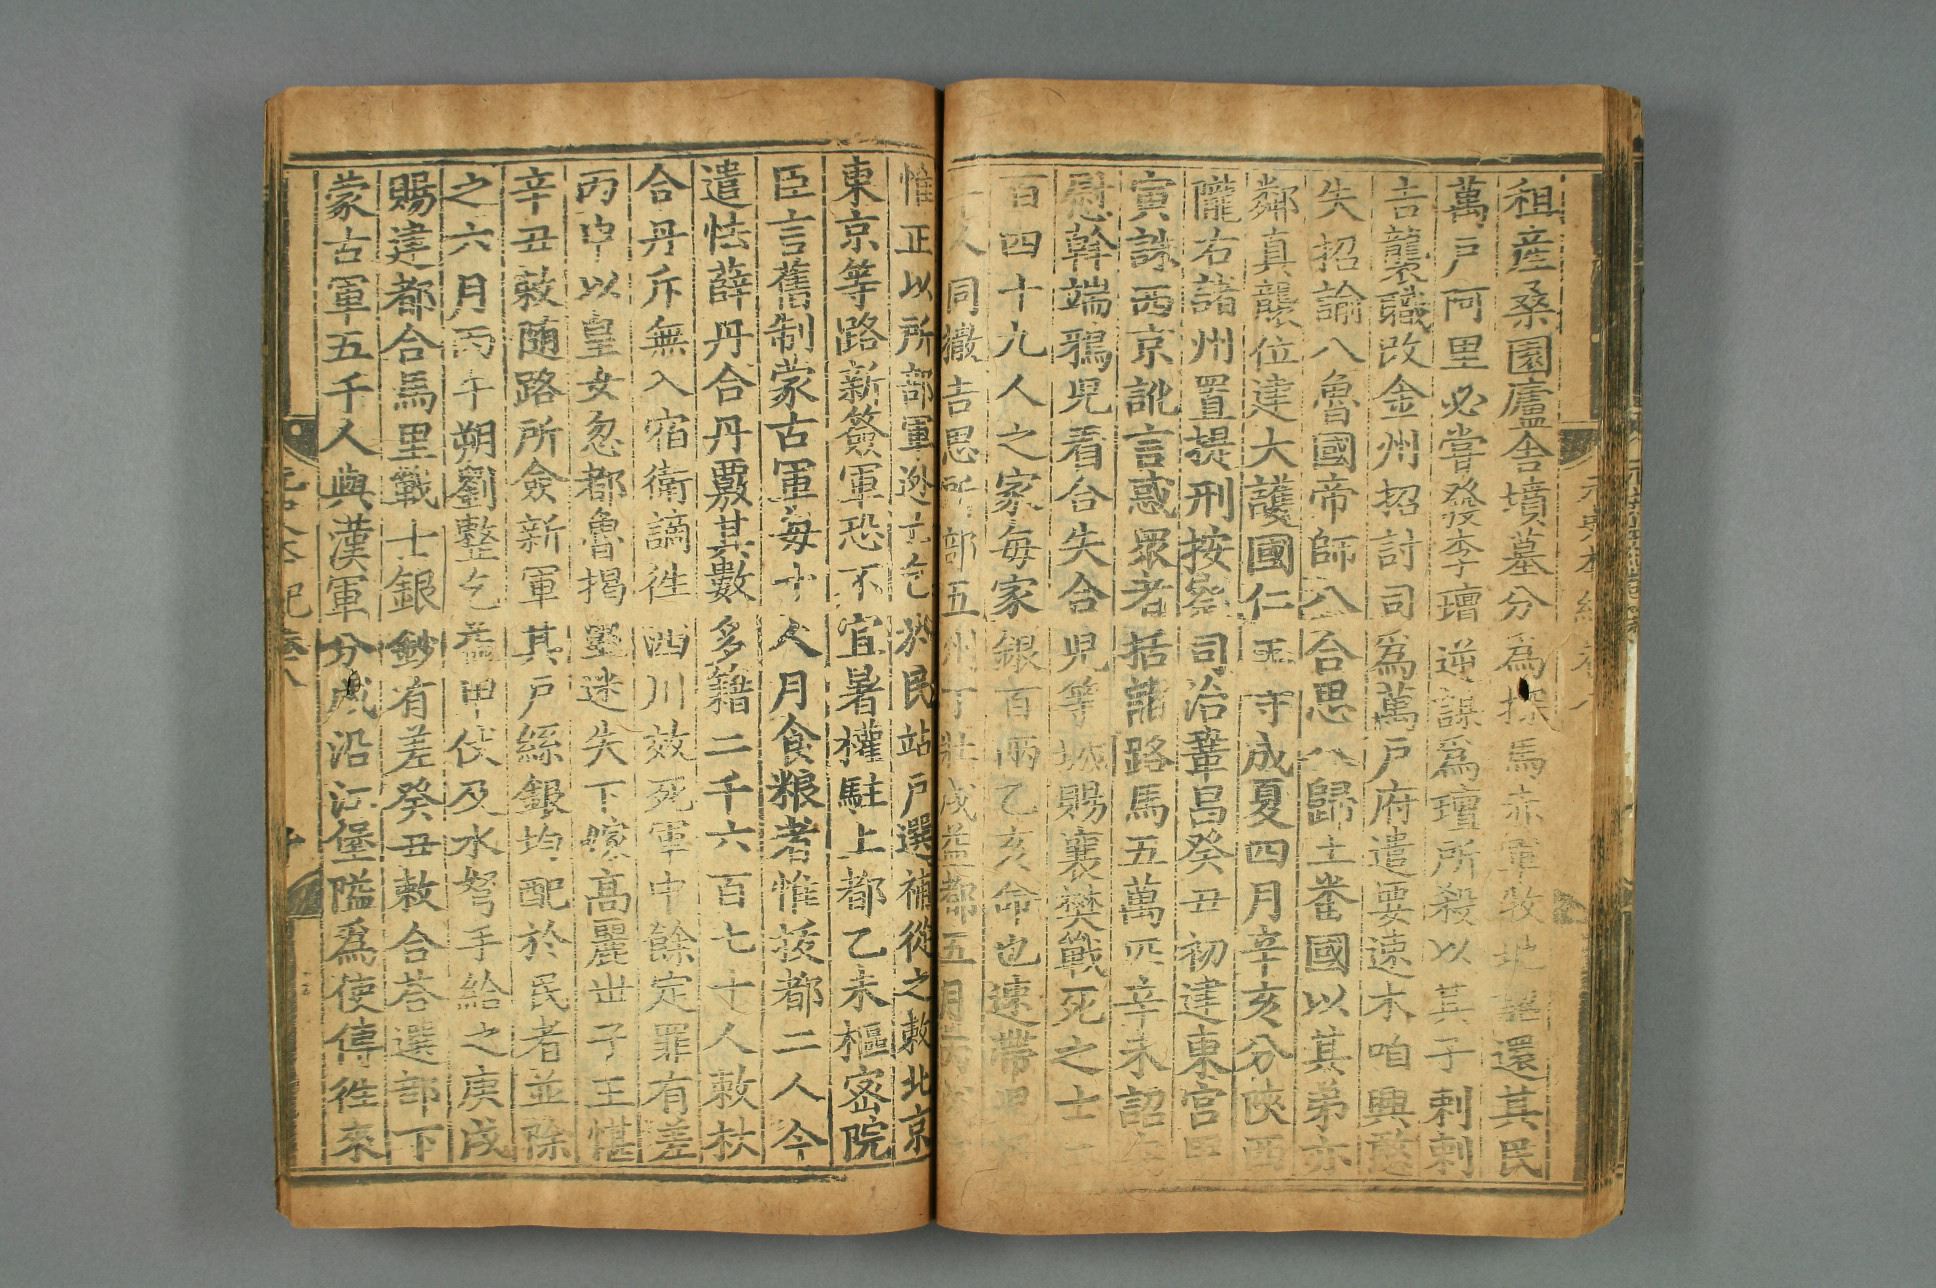 租産桑園廬舍墳墓分爲探馬赤軍牧地者還其民
萬戶阿里必嘗發李璮逆謀爲璮所殺以其子剌剌
吉襲職改金州招討司爲萬戶府遣要速木咱興憨
失招諭八魯國帝師八合思八歸土番國以其弟亦
鄰真襲位建大護國仁王寺成夏四月辛亥分陝西
隴右諸州置提刑按察司治鞏昌癸丑初建東宮甲
寅誅西京訛言惑眾者括諸路馬五萬匹辛未詔安
慰斡端鴉兒看合失合兒等城賜襄樊戰死之士二
百四十九人之家每家銀百兩乙亥命也速帶兒將
千人同撒吉思所部五州丁壯戍益都五月丙戌汪
惟正以所部軍逃亡乞於民站戶選補從之敕北京
東京等路新簽軍恐不宜暑權駐上都乙未樞密院
臣言舊制蒙古軍每十人月食粮者惟拔都二人今
遣怯薛丹合丹覈其數多籍二千六百七十人敕杖
合丹斥無入宿衛謫徃西川效死軍中餘定罪有差
丙申以皇女忽都魯揭里迷失下嫁高麗世子王愖
辛丑敕隨路所僉新軍其戶絲銀均配於民者並除
之六月丙午朔劉整乞益甲仗及水弩手給之庚戌
賜建都合馬里戰士銀鈔有差癸丑敕合荅選部下
蒙古軍五千人與漢軍分戍沿江堡隘爲使傳徃來